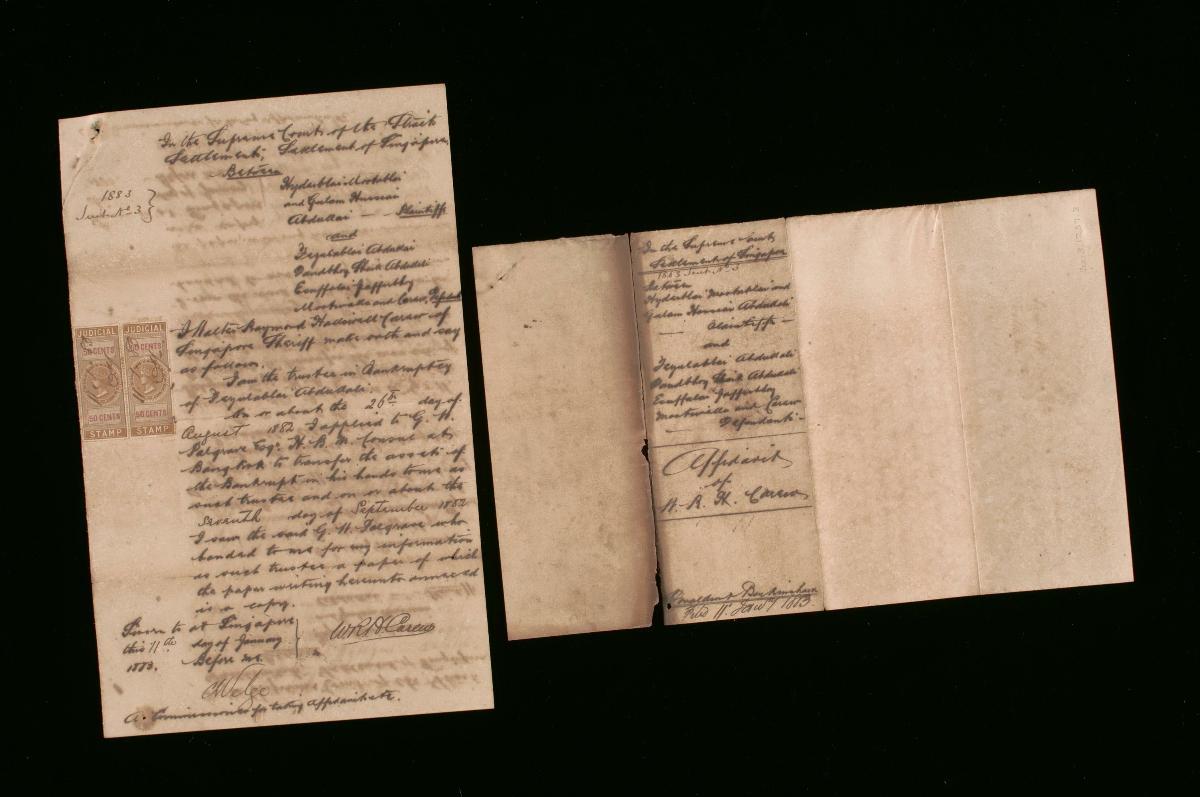 In the Supreme Court of the Strait
Settlements, Settlement of Singapore,
Between
1883
Suit No 3
Hyderbhai Mootabhai
and Gulam Hussain
Abdullai — Plaintiffs
and
Abdullai
Shaik Abdullai
Esuffalai Jafferbhoy
Mootwalla and Carew, Defendants
I Walter Raymond Hadowell Carew of
Singapore Sheriff make oath and say
as follows.
I am the trustee in Bankruptcy
of Abdullali.
On or about the 26th day of
August 1882 I applied to G. H.
Palgrave Esqr. H. B. M. Consul at
Bangkok to transfer the assets of
the Bankrupt in his hands to me as
such trustee and on or about the
Seventh day of September 1882
I saw the said G. H. Palgrave who
handed to me for my information
as such trustee a paper of which
the paper writing hereunto annexed
is a copy.
Sworn to at Singapore
this 11th day of January
1883. Before me.
WRH Carew
A. Commissioner for taking Affidavits etc.
JUDICIAL
50 CENTS
50 CENTS
STAMP
JUDICIAL
50 CENTS
50 CENTS
STAMP
In the Supreme Court
Settlement of Singapore
1883 Suit No 3
Between
Hyderbhai Mootabhai and
Gulam Hussain Abdullali
— Plaintiffs —
and
Abdullali
Shaik Abdullali
Esuffalai Jafferbhoy
Mootwalla and Carew
— Defendants
Affidavit
of
W. R. H. Carew
Donaldson & Burkinshaw
Filed 11 Jany 1883.